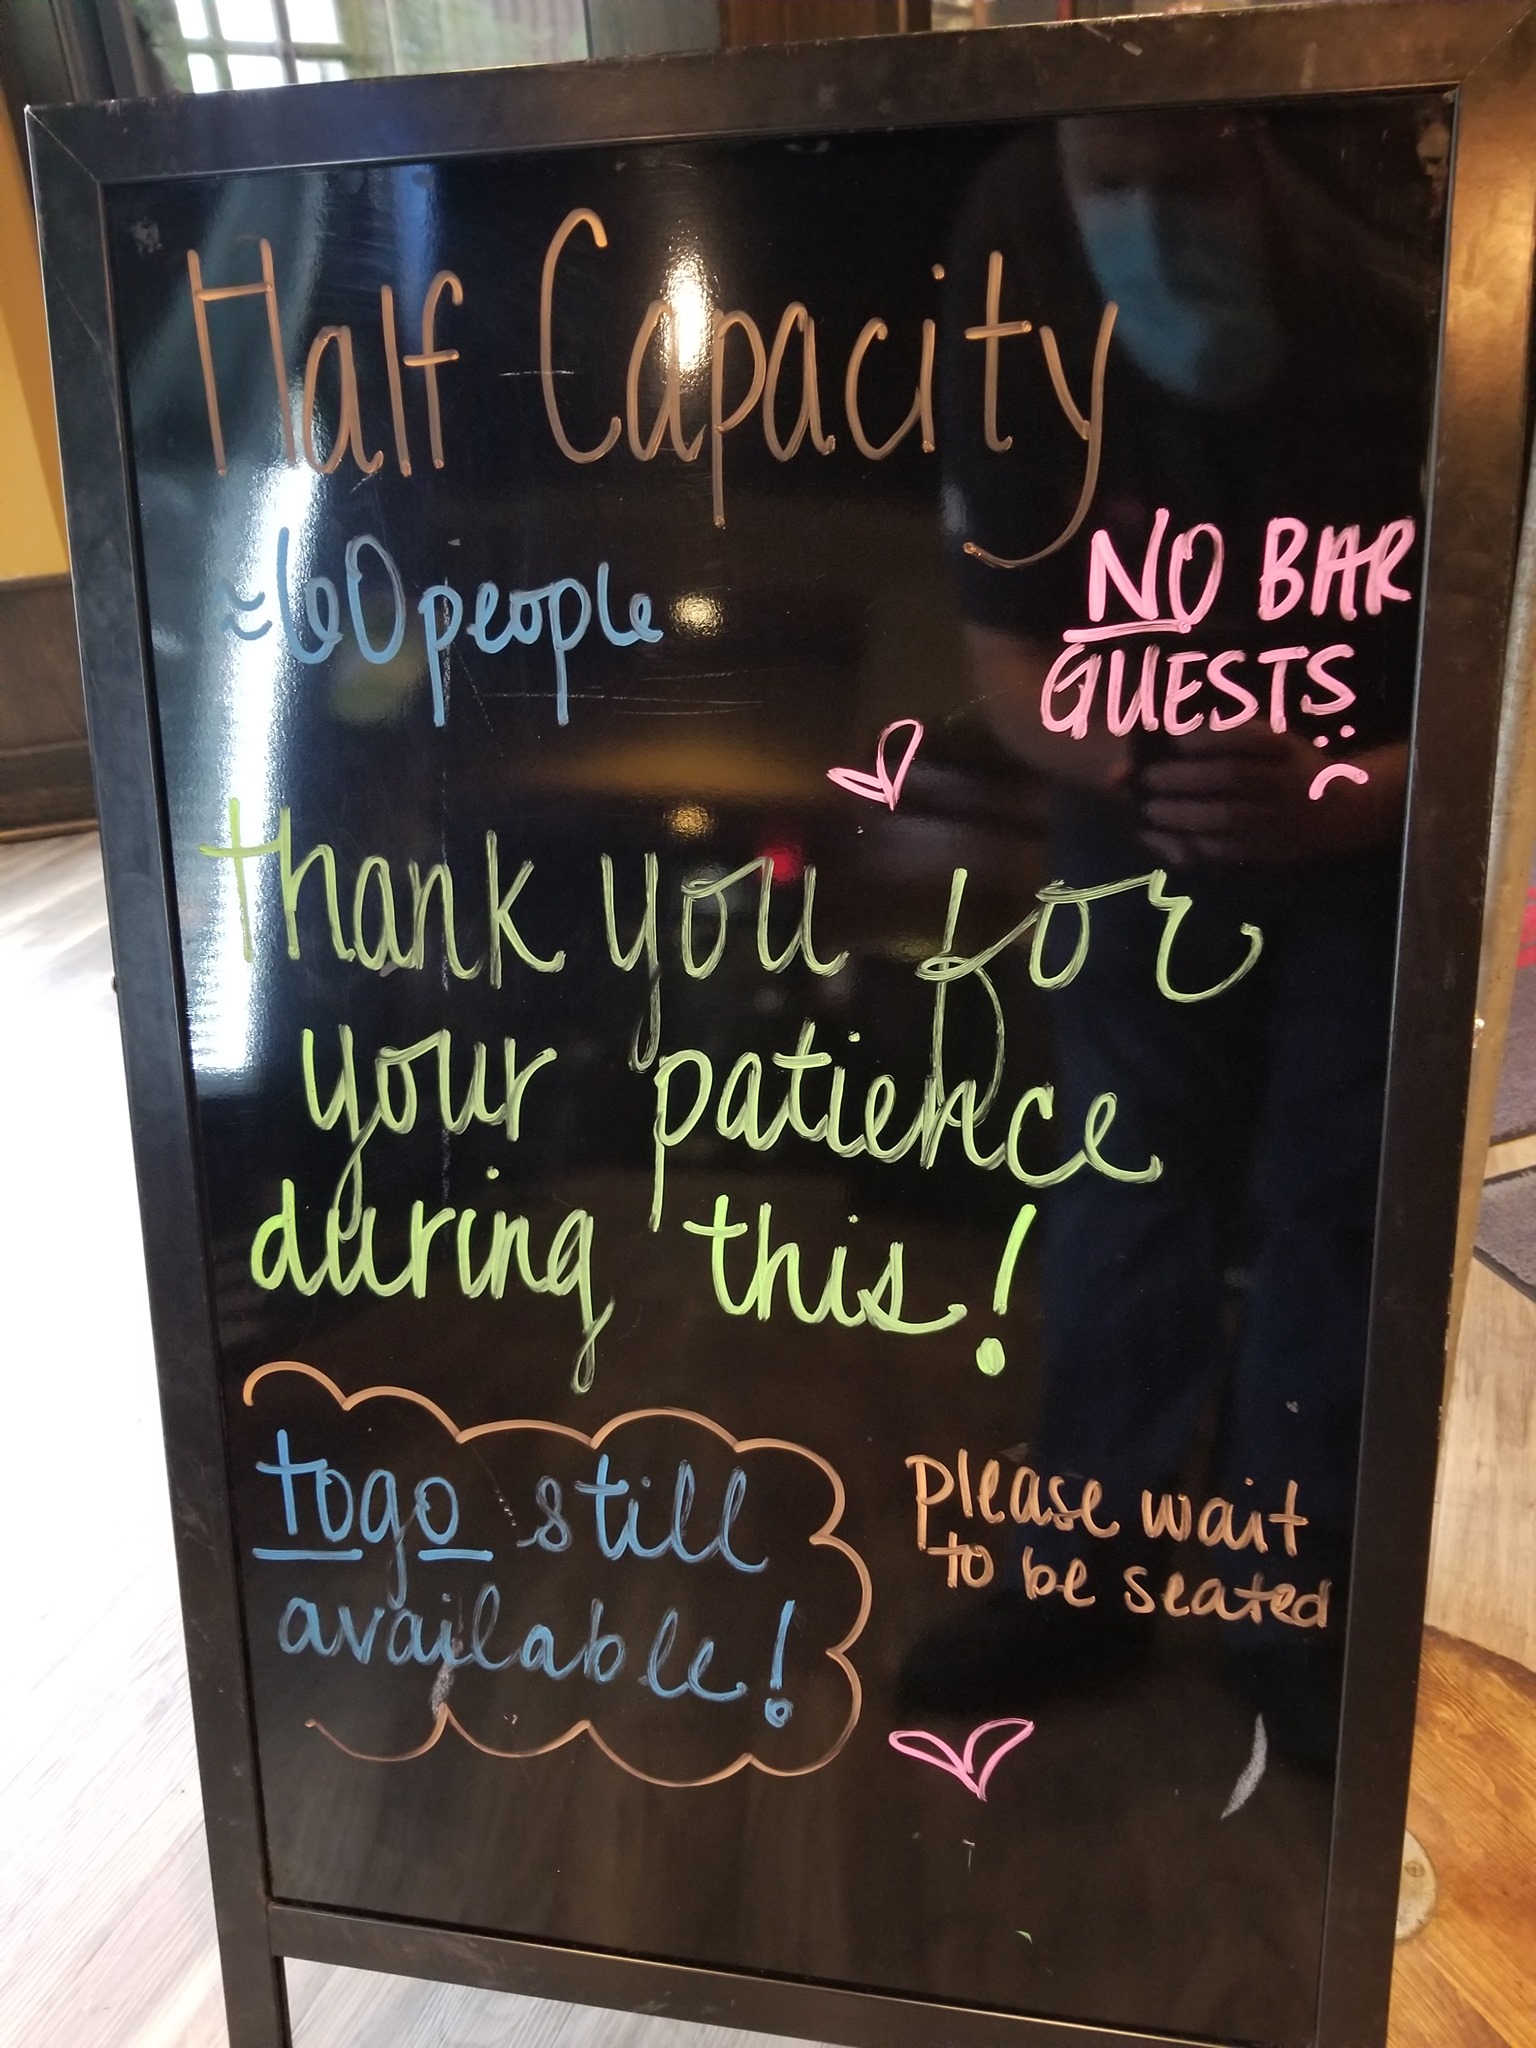 Half Capacity
≈60 people
NO BAR
GUESTS
thank you for
your patience
during this!
togo still
available!
please wait
to be seated